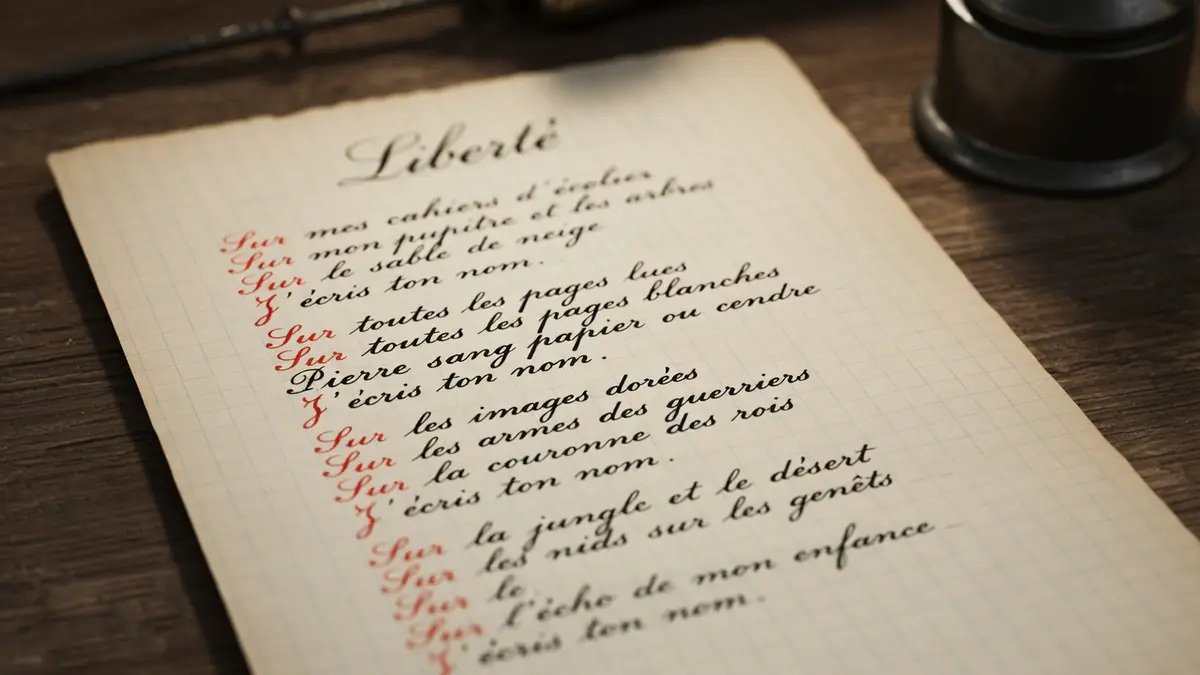 Liberté
Sur mes cahiers d'écolier
Sur mon pupitre et les arbres
Sur le sable de neige
J'écris ton nom.
Sur toutes les pages lues
Sur toutes les pages blanches
Pierre sang papier ou cendre
J'écris ton nom.
Sur les images dorées
Sur les armes des guerriers
Sur la couronne des rois
J'écris ton nom.
Sur la jungle et le désert
Sur les nids sur les genêts
Sur le
Sur l'écho de mon enfance
J'écris ton nom.